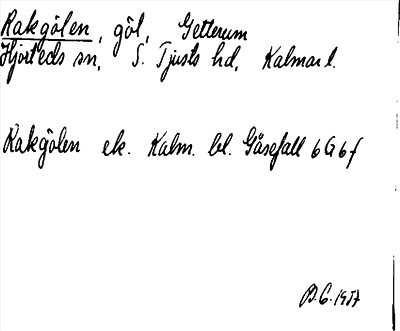 Rakgölen, göl, Getterum
Hjorteds sn, S. Tjusts hd, Kalmar l.
Rakgölen ek. Kalm. bl. Gåsefall 6G6f
1957